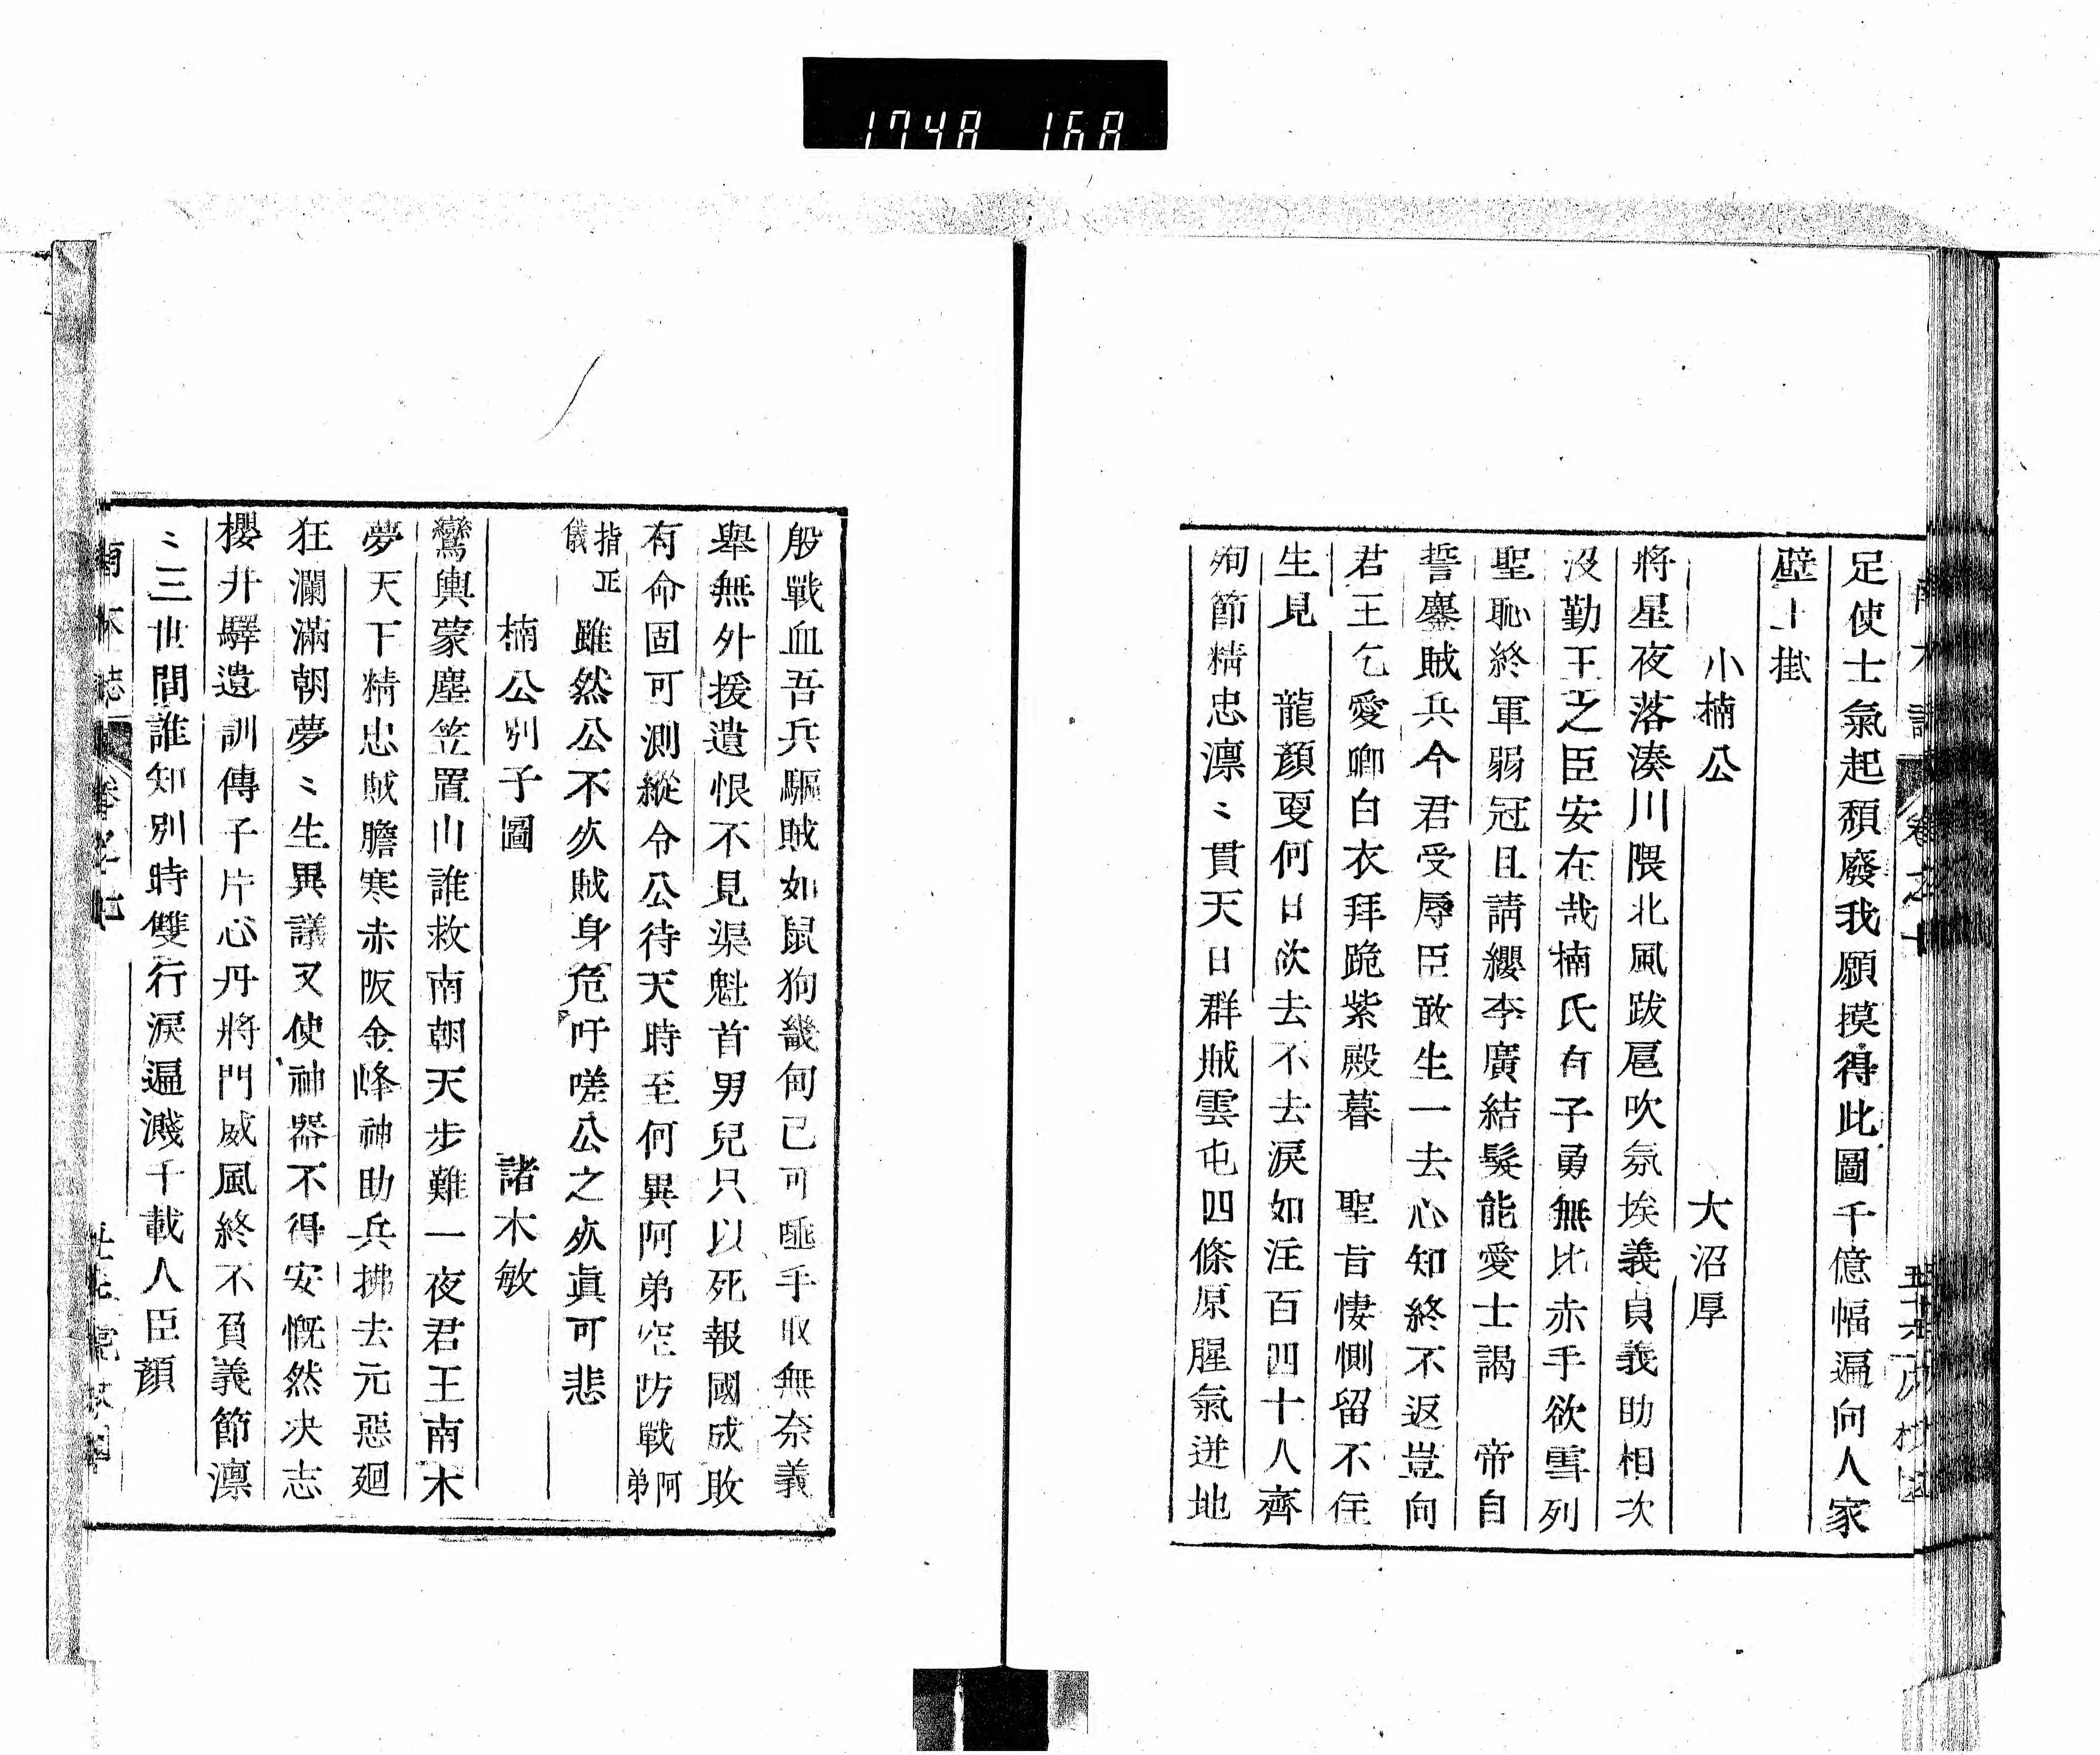 1748 168
足使士氣起頽廢我願摸得此圖千億幅遍向人家
壁上掛
小楠公 大沼厚
將星夜落湊川隈北風跋扈吹氛埃義貞義助相次
沒勤王之臣安在哉楠氏有子勇無比赤手欲雪列
聖恥終軍弱冠且請纓李廣結髮能愛士謁 帝自
誓鏖賊兵今君受辱臣敢生一去心知終不返豈向
君王乞愛卿白衣拜跪紫殿暮 聖旨悽惻留不住
生見 龍顏更何日欲去不去淚如注百四十人齊
殉節精忠凛〻貫天日群賊雲屯四條原腥氣迸地
般戰血吾兵驅賊如鼠狗畿甸已可唾手收無奈義
舉無外援遺恨不見渠魁首男兒只以死報國成敗
有命固可測縱令公待天時至何異阿弟空防戰阿弟
指正儀 雖然公不死賊身危吁嗟公之死眞可悲
楠公別子圖 諸木敏
鸞輿蒙塵笠置山誰救南朝天步難一夜君王南木
夢天下精忠賊膽寒赤阪金峰神助兵拂去元惡廻
狂瀾滿朝夢〻生異議又使神器不得安慨然决志
櫻井驛遺訓傳子片心丹將門威風終不負義節凛
〻三世間誰知別時雙行淚遍濺千載人臣顏